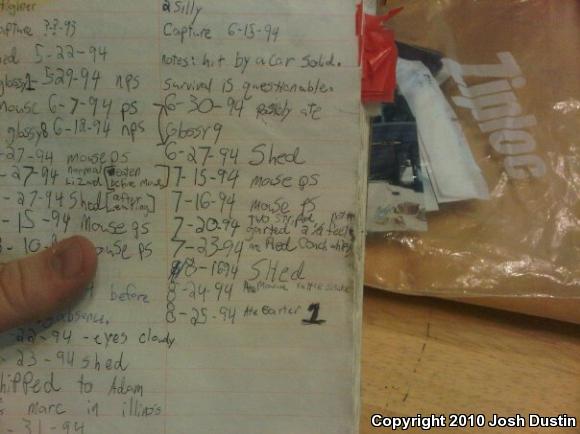 apture ??-93
ed 5-22-94
glossy 5-29-94 nps
Mouse 6-7-94 ps
glossy8 6-18-94 nps
-27-94 mouse ps
-27-94 normal Lizard [eaten before mouse]
-27-94 Shed [after eating]
-15-94 mouse ps
-10- mouse ps
before
absence.
-22-94 - eyes cloudy
-23-94 shed
hipped to Adam
marc in illinois
-31-94
2 Silly
Capture 6-15-94
notes: hit by a car solid.
Survival is questionable.
6-30-94 ate
Glossy 9
6-27-94 Shed
7-15-94 mouse ps
7-16-94 mouse ps
7-20-94 two striped
garter
7-23-94 Red Coachwhip
8-1694 Shed
8-24-94 Ate
8-25-94 Ate Garter 1
Ziploc
Copyright 2010 Josh Dustin